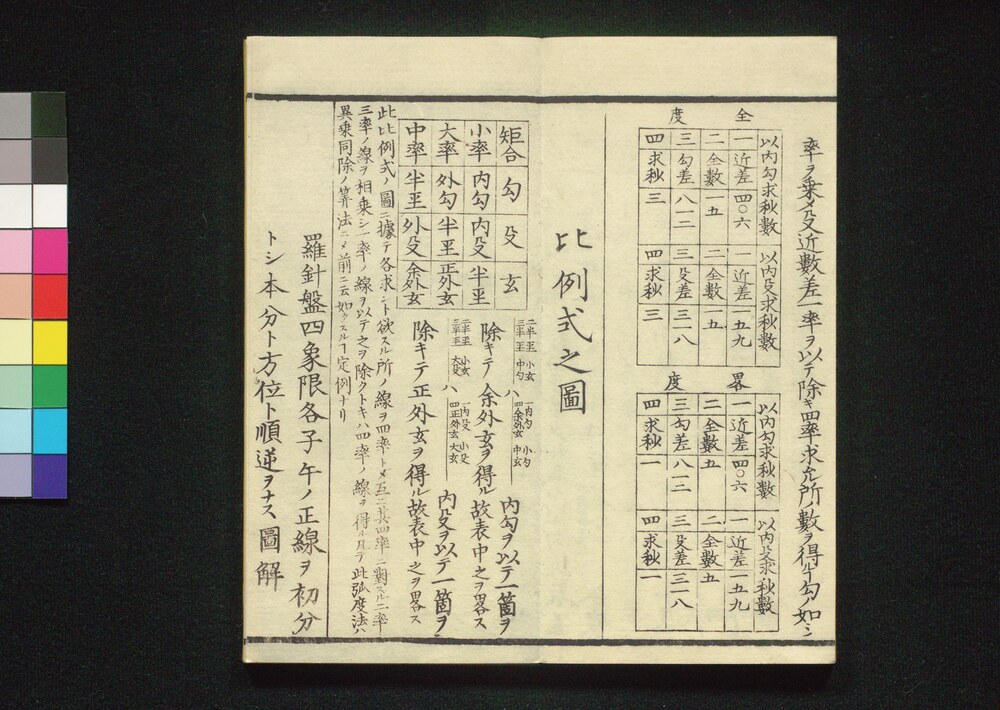 率ヲ乗メ殳近數差一率ヲ以テ除キ四率求ル所ノ數ヲ得ル丁勾ノ如シ
全度
以内勾求秋數
一 近差 四〇六
二 全數 一五
三 勾差 八一二
四 求秋 三
以内殳求秋數
一 近差 一五九
二 全數 一五
三 殳差 三一八
四 求秋 三
畧度
以内勾求秋數
一 近差 四〇六
二 全數 五
三 勾差 八一二
四 求秋 一
以内殳求秋數
一 近差 一五九
二 全數 五
三 殳差 三一八
四 求秋 一
比例式之圖
矩合 勾 殳 玄
小率 内勾 内殳 半王
大率 外勾 半王 正外玄
中率 半王 外殳 余外玄
二半王 小玄
三半王 中勾
一内勾 小勾
四余外玄 中玄
内勾ヲ以テ一箇ヲ
除キテ余外玄ヲ得ル故表中之ヲ畧ス
二半王 小玄
三半王 大殳
一内殳 小殳
四正外玄 大玄
内殳ヲ以テ一箇ヲ
除キテ正外玄ヲ得ル故表中之ヲ畧ス
此比例式ノ圖ニ據テ各求ント欲スル所ノ線ヲ四率トメ互ニ其四率ニ對スル二率
三率ノ線ヲ相乗シ一率ノ線ヲ以テ之ヲ除クトキハ四率ノ線ヲ得ル凡テ此弧度法ハ
異乗同除ノ算法ニメ前ニ云如クスル丁定例ナリ
羅針盤四象限各子午ノ正線ヲ初分
トシ本分ト方位ト順逆ヲナス圖解